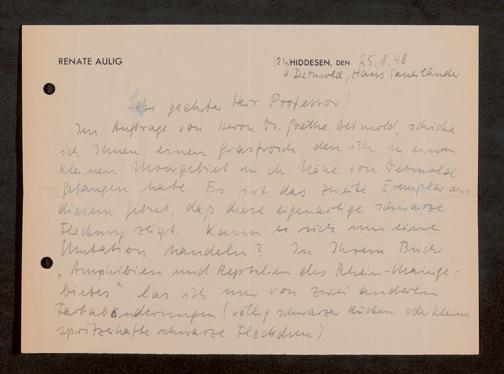 RENATE AULIG
(21a) HIDDESEN, DEN 25.8.48
b. Detmold, Haus Sauerländer
Sehr geehrter Herr Professor!
Im Auftrage von Herrn Dr. Goethe Detmold, schicke
ich Ihnen einen Grasfrosch, den ich in einem
kleinen Moorgebiet in der Nähe von Detmold
gefangen habe. Es ist das zweite Exemplar aus
diesem Gebiet, daß diese eigenartige schwarze
Fleckung zeigt. Kann es sich um eine
Mutation handeln? In Ihrem Buch
„Amphibien und Reptilien des Rhein-Mainge-
bietes" las ich nur von zwei anderen
Farbabänderungen (völlig schwarzer Rücken oder kleine
spritzerhafte schwarze Fleckchen).